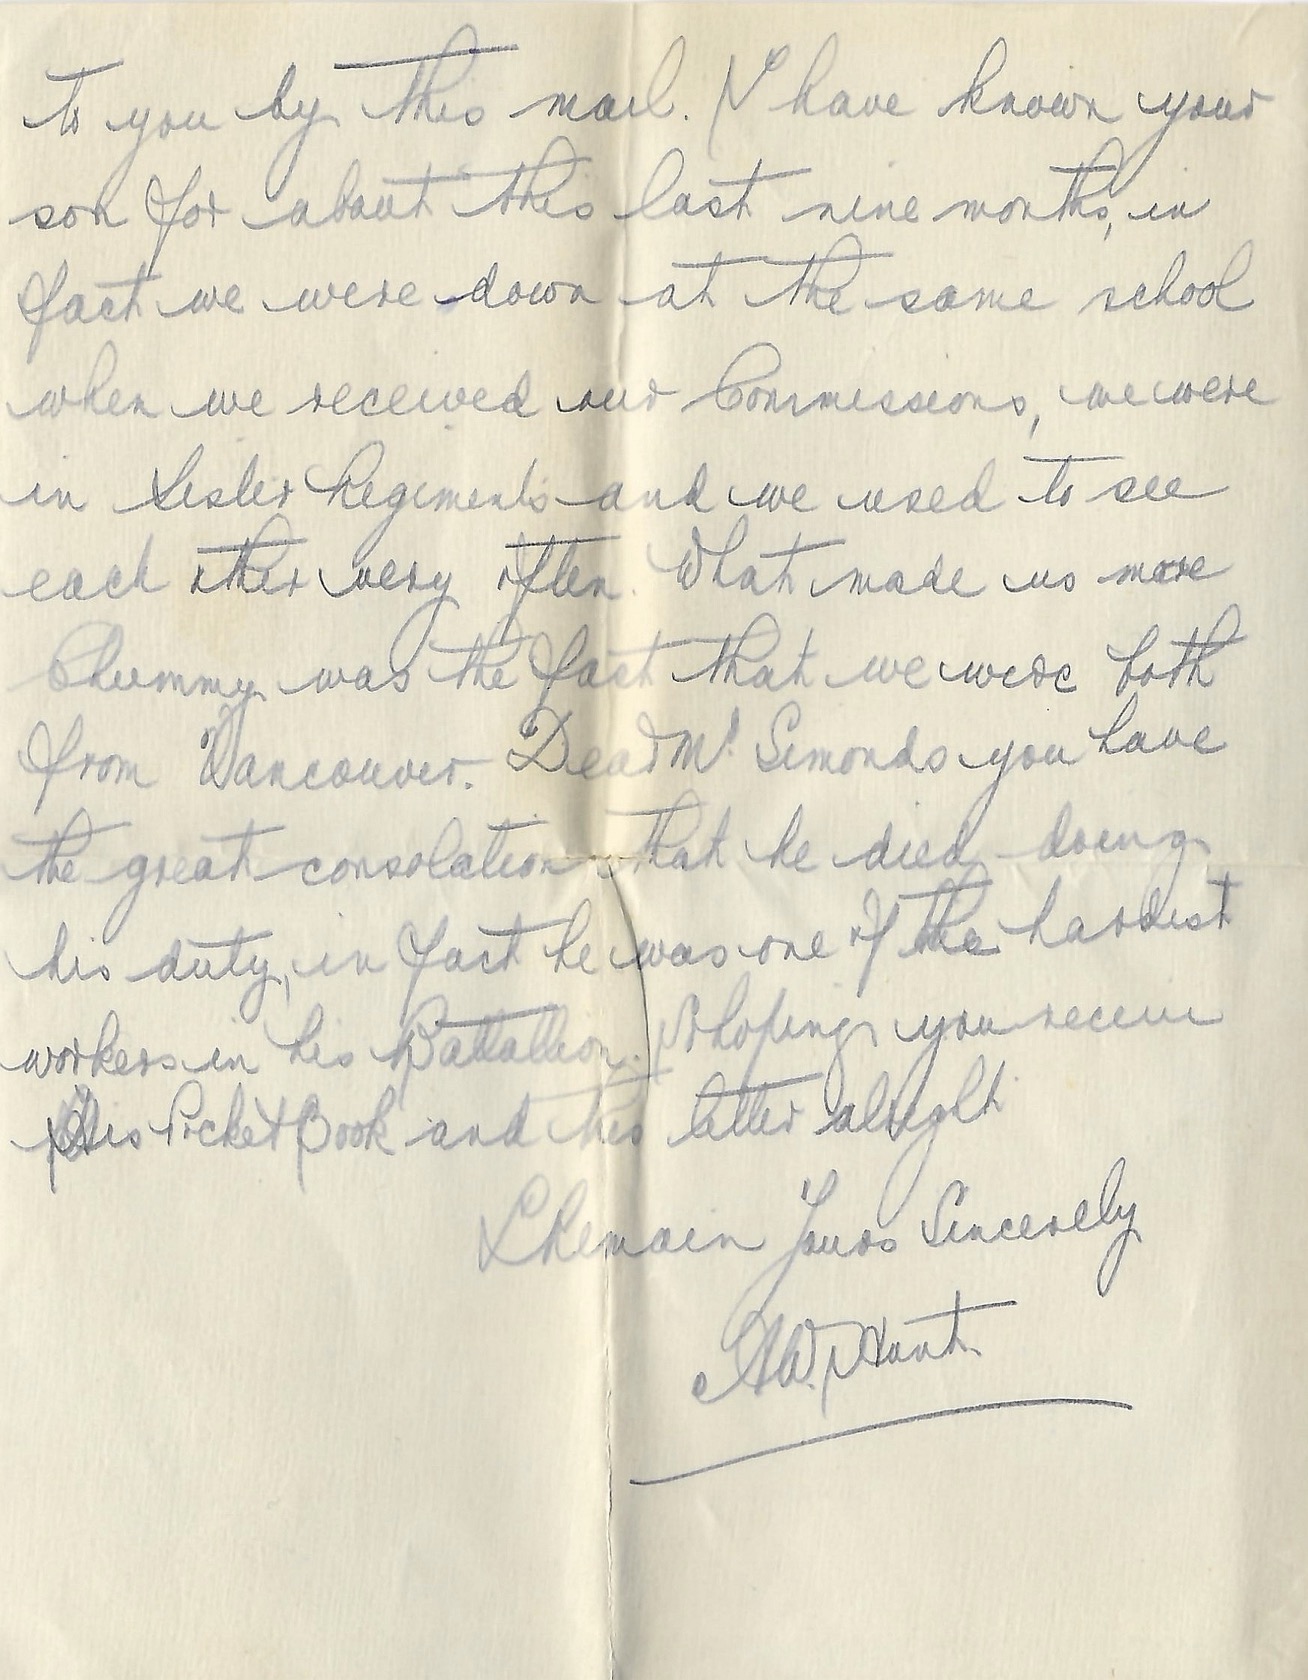 to you by this mail. I have known your
son for about this last nine months, in
fact we were down at the same school
when we received our Commissions, we were
in Sister Regiments and we used to see
each other very often. What made us more
Chummy was the fact that we were both
from Vancouver. Dear Mr. Simonds you have
the great consolation that he died doing
his duty, in fact he was one of the hardest
workers in his Battallion. Hoping you receive
his Pocket Book and this letter alright
I Remain Yours Sincerely
A.W. Hunt